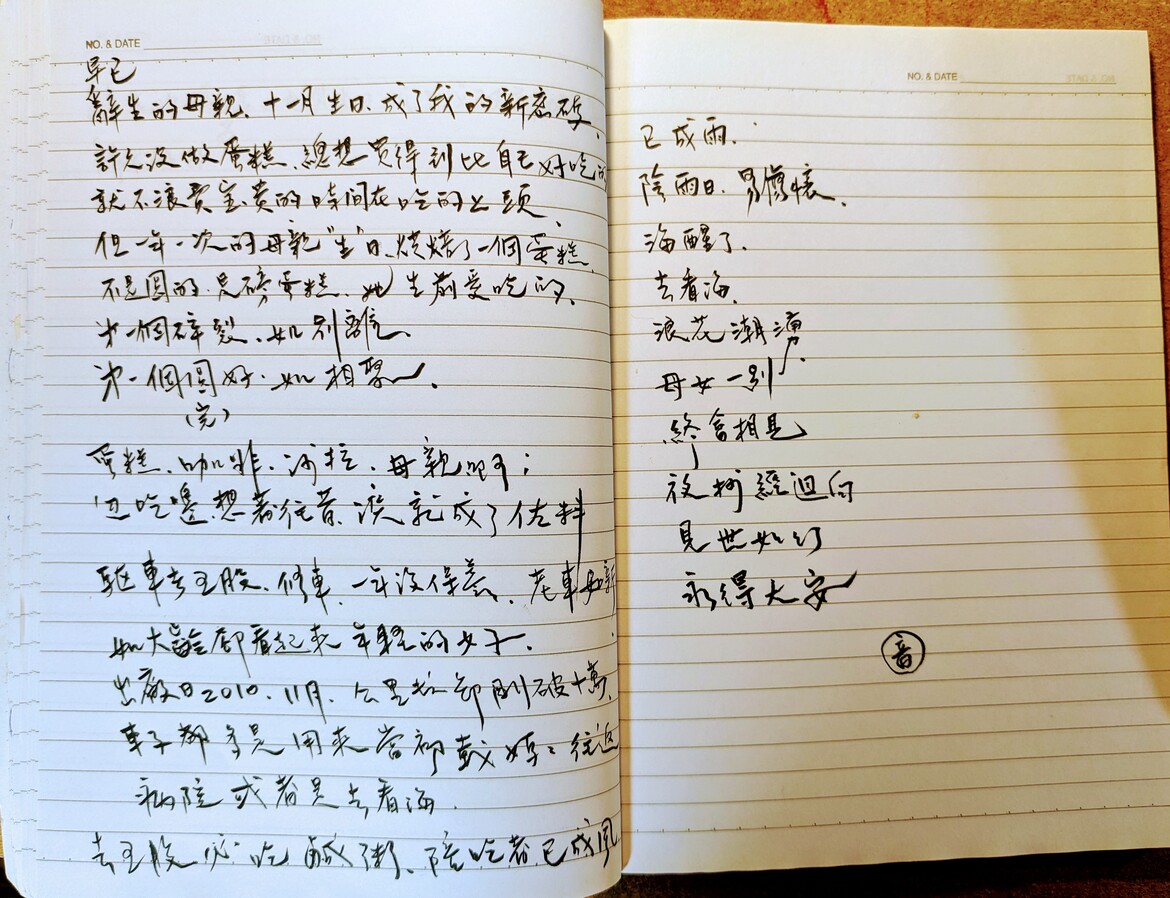 NO. & DATE
早已
辭生的母親、十一月生日、成了我的新密碼、
許久沒做蛋糕、總想買得到比自己好吃的
就不浪費寶貴的時間在吃的上頭、
但一年一次的母親“生”日、烘焙了一個蛋糕、
不是圓的、是磅蛋糕、她生前愛吃的、
第一個碎裂、如別離、
第一個圓好、如相聚、
(完)
蛋糕、咖啡、沙拉、母親啊；
邊吃邊想著往昔、淚就成了佐料
驅車去五股、修車、一年沒保養、老車如新
如大齡卻看起來年輕的女子、
出廠日2010、11月、公里數卻剛破十萬、
車子都多是用來當初載媽媽往返
病院或者是去看海、
去五股必吃鹹粥、陪吃者已成風
NO. & DATE
已成雨、
陰雨日、易傷懷、
海醒了、
去看海、
浪花潮湧、
母女一別
終會相見
迴向
見世如幻
永得大安
音